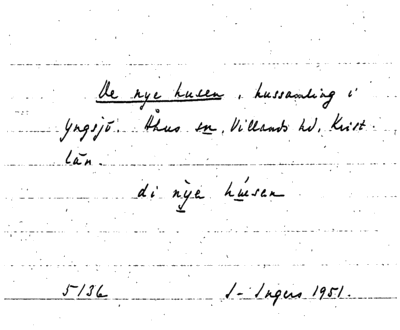 De nye husen, hussamling i
Yngsjö. Åhus sn, Villands hd, Krist.
län.
di nỳe húsen
5136 I-Ingers 1951.